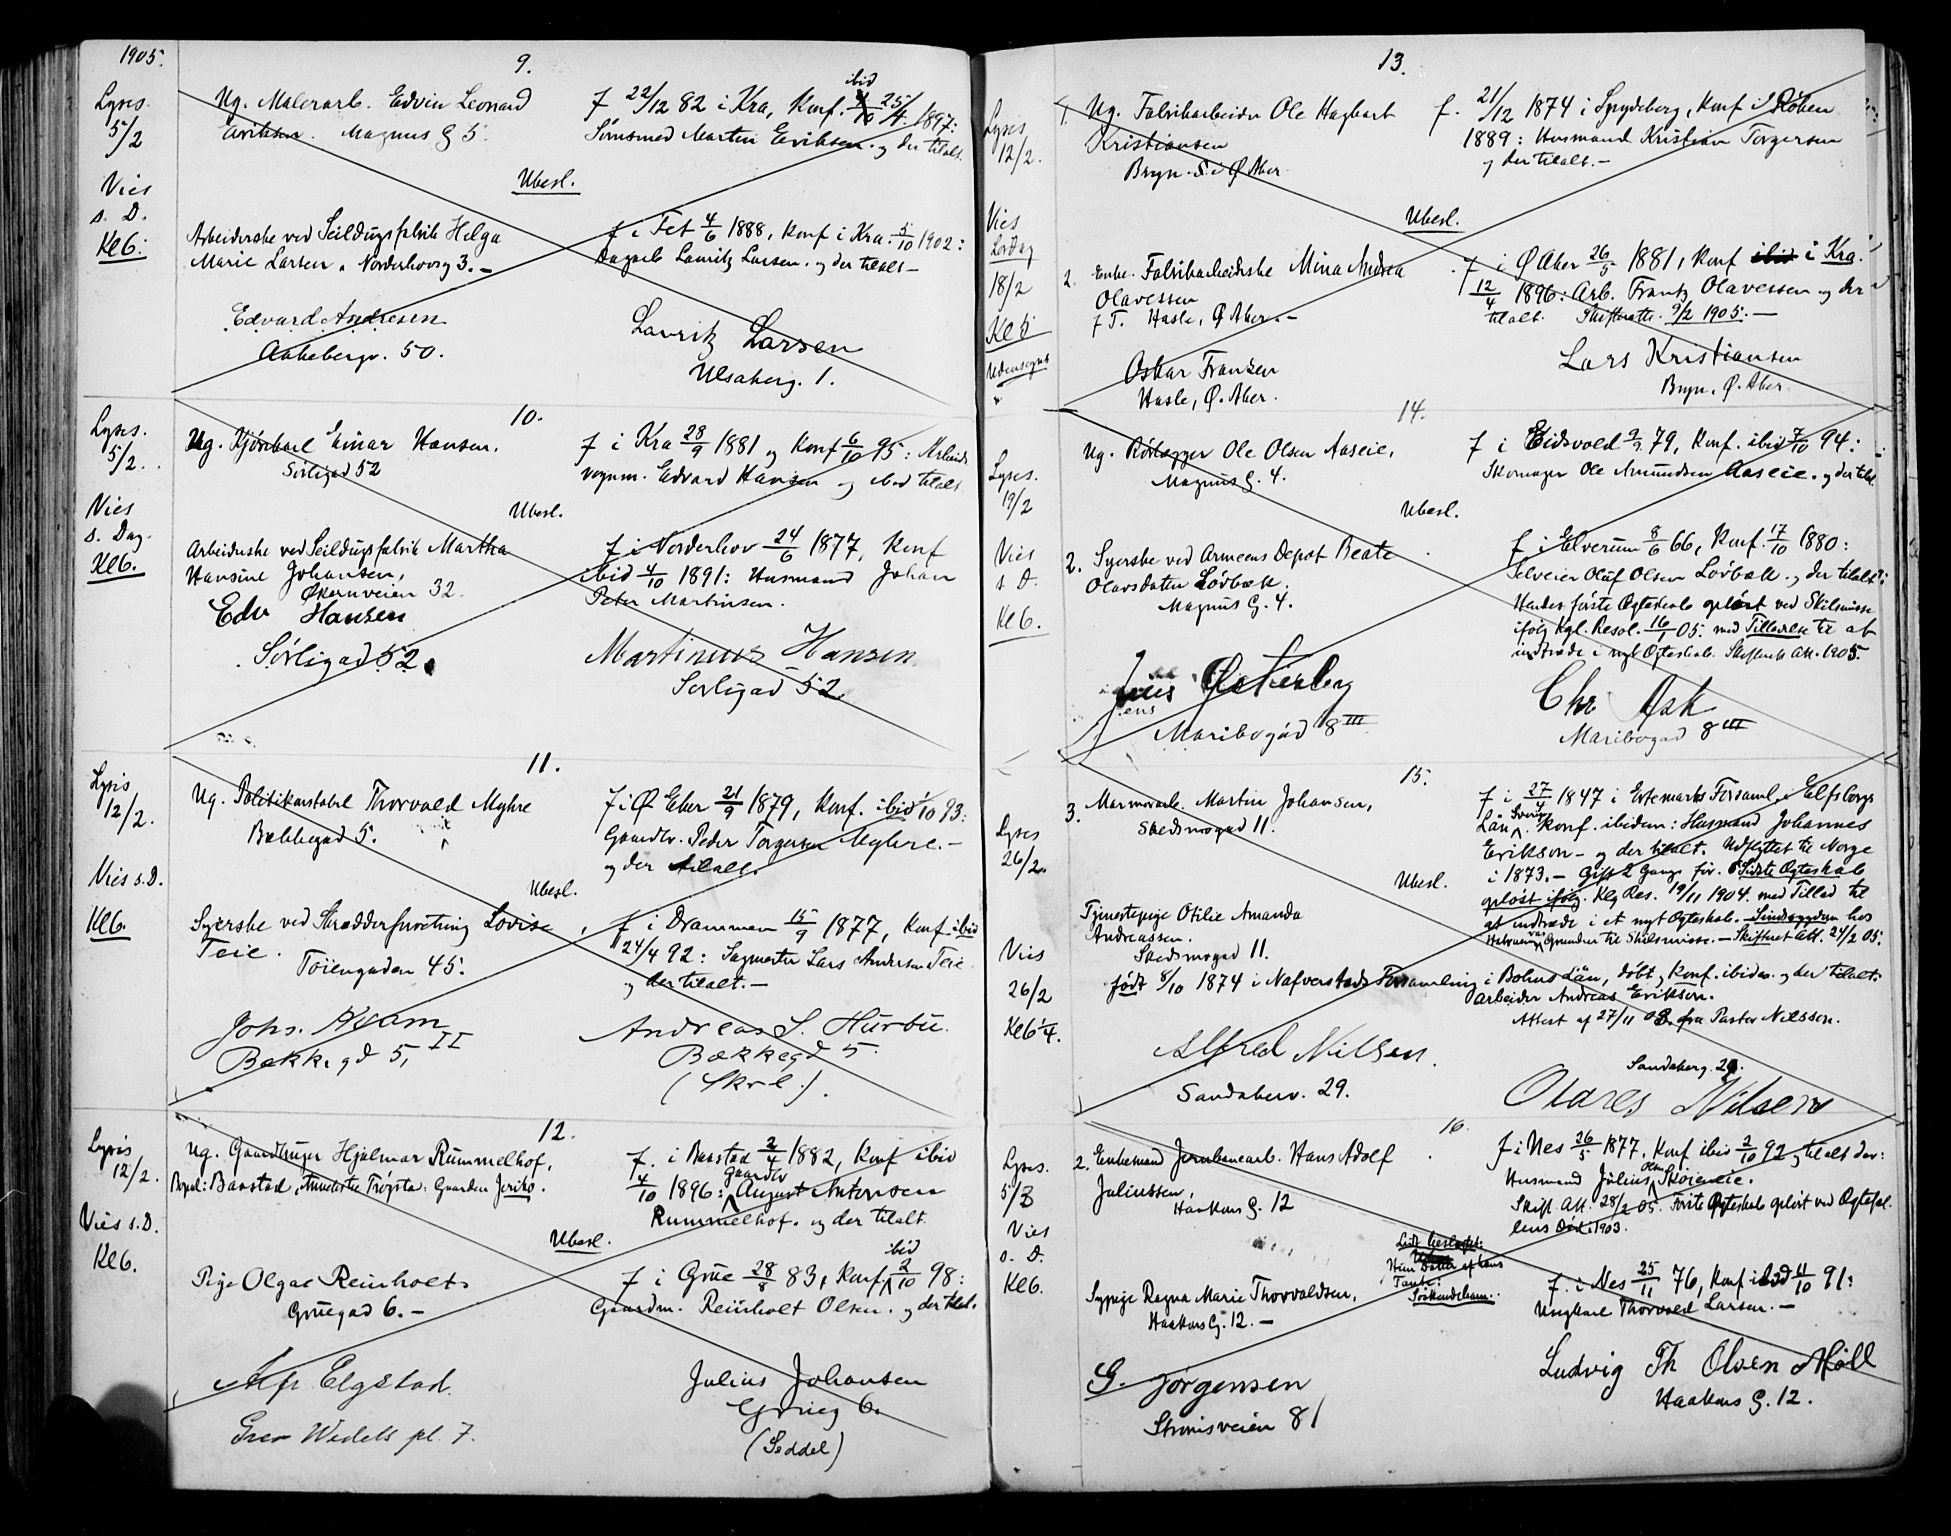 1905.
9.
Lyses.
5/2
Vies
s. D.
Kl 6.
Ug. Malerarb. Edvin Leonard
Eriksen. Magnus G 5.
f 22/12 82 i Kra, Konf. ibid 25/4 1897:
Martin Eriksen og der til alt.
Ubesl.
Arbeiderske ved Seildugsfabrik Helga
Marie Larsen. Norderhovsg 3.-
f i Fet 4/6 1888, Konf i Kra. 5/10 1902:
Dagarb Lauritz Larsen. og der til alt-
Edvard Andresen
Aakebergv. 50.
Lauritz Larsen
1.
10.
Lyses.
5/2.
Vies
s. Dag.
Kl 6.
Ug. Einar Hansen.
Sørligad 52
f i Kra 28/9 1881 og Konf 6/10 95: Arbeids
vognm. Edvard Hansen og ibid til alt.
Ubesl.
Arbeiderske ved Seildugsfabrik Martha
Hansine Johansen,
Økernveien 32.
f i Norderhov 24/6 1877, Konf
ibid 4/10 1891: Husmand Johan
Peter Martinsen.
Edv Hansen
Sørligad 52.
Martinius Hansen
Sørligad 52.
11.
Lyses
12/2.
Vies s. D.
Kl 6.
Ug. Politikonstabel Thorvald Myhre
Bækkegad 5.
f i Ø Aker 21/9 1879, Konf. ibid 1/10 93:
Gaardbr. Peder Torgersen Myhre.-
og der til alt.
Ubesl.
Syerske ved Skrædderforretning Lovise
Teie.
Tøiengaden 45.
f i Drammen 15/9 1877, Konf ibid
24/4 92: Sagmester Lars Andersen Teie
og der til alt.-
Johs. Kvam
Bækkegd 5, II
Andreas S. Hurbu.
Bækkegd 5.
12.
Lyses
12/2.
Vies s. D.
Kl 6.
Ug. Gaardbruger Hjalmar Rummelhof,
Bopæl: Baastad, Trøgstad: Gaarden Jeriko.
f. i Baastad 2/4 1882, Konf ibid
4/10 1896: Gaardbr August Antonsen
Rummelhof. og der til alt.
Ubesl.
Pige Olga Reinholt
Gruegad 6.-
f i Grue 28/8 83, Konf ibid 2/10 98:
Gaardm. Reinholt Olsen. og der til alt.
Alfr Elgstad.
Grev Wedels pl. 7.
Julius Johansen
Grueg 6.
(Seddel)
13.
Lyses
12/2.
Vies
Lørdag
18/2
Kl 5
Udensogns
1. Ug. Fabrikarbeider Ole Hagbart
Kristiansen
Bryn. S. i Ø Aker.
f. 21/12 1874 i Spydeberg, Konf i Røken
1889: Husmand Kristian Torgersen
og der til alt.-
Ubesl.
2. Enke. Fabrikarbeiderske Mina Andrea
Olavessen
f T. Hasle, Ø Aker.-
f i Ø Aker 26/5 1881, Konf ibid i Kra.
12/4 1896: Arb. Frantz Olavessen og der
til alt. Skifteatt. 9/2 1905.-
Oskar Franzen
Hasle, Ø. Aker.
Lars Kristiansen
Bryn, Ø. Aker.
14.
Lyses.
19/2
Vies
s D.
Kl 6.
Ug. Rørlægger Ole Olsen Aaseie,
Magnus G. 4.
f i Eidsvold 9/9 79, Konf. ibid 7/10 94:
Skomager Ole Amundsen Aaseie. og der til alt.
Ubesl.
2. Syerske ved Armeens Depot Beate
Olavsdatter Løvbæk.
Magnus G. 4.
f i Elverum 8/6 66, Konf. 17/10 1880:
Selveier Oluf Olsen Løvbæk. og der til alt:
Hendes første Ægteskab opløst ved Skilsmisse
ifølg Kgl. Resol. 16/1 05. med Tilladelse til at
indtræde i nyt Ægteskab. Skifteatt 1905.
Jens Østerberg
Maribogad 8 III
Chr Ask
Maribogad 8 III
15.
Lyses
26/2.
Vies
26/2
Kl 6 1/4.
3. Marmorarb. Martin Johansen,
Skedsmogad 11.
f i 27/4 1847 i Ertemarks Forsaml. Elfsborgs
Län Sverig. Konf. ibidem: Husmand Johannes
Erikson - og der til alt. Udflyttet til Norge
i 1873.- Gift 2 Gange før. Sidste Ægteskab
opløst ifølg. Klg Res. 19/11 1904. med Tillad til
at indtræde i et nyt Ægteskab. Sindssygdom hos
Hustruen var Grunden til Skilsmisse.- Skifteret Att. 24/2 05.
Ubesl.
Tjenestepige Otilie Amanda
Andreassen.
Skedsmogad 11.
født 8/10 1874 i Nafverstads Forsamling i Bohus Län, døbt og konf. ibidm. og der til alt:
arbeider Andreas Erikson.
Attest af 27/11 03. fra Pastor Nilsson.
Alfred Nilsen.
Sandakerv. 29.
Sandakerg. 29.
Olares Nilsen
16.
Lyses.
5/3
Vies
s. D.
Kl 6.
2. Enkemand Jernbanearb. Hans Adolf
Juliussen,
Haakons G. 12
f i Nes 26/5 1877, Konf ibid 2/10 92 og til alt der:
Husmand Julius Olsen Skoieneie.
Skift. Att. 28/2 05. Første Ægteskab opløst ved Ægtefæl-
lens Død. 1903.
Lidt beslægtet:
Hun Datter af hans
Tante:
Søskendebarn.
Sypige Ragna Marie Thorvaldsen,
Haakons G. 12.-
f. i Nes 25/11 76, Konf ibid 11/10 91:
Ungkarl Thorvald Larsen.-
G. Jørgensen
Strømsveien 81
Ludvig Th Olsen Moll
Haakons G. 12.